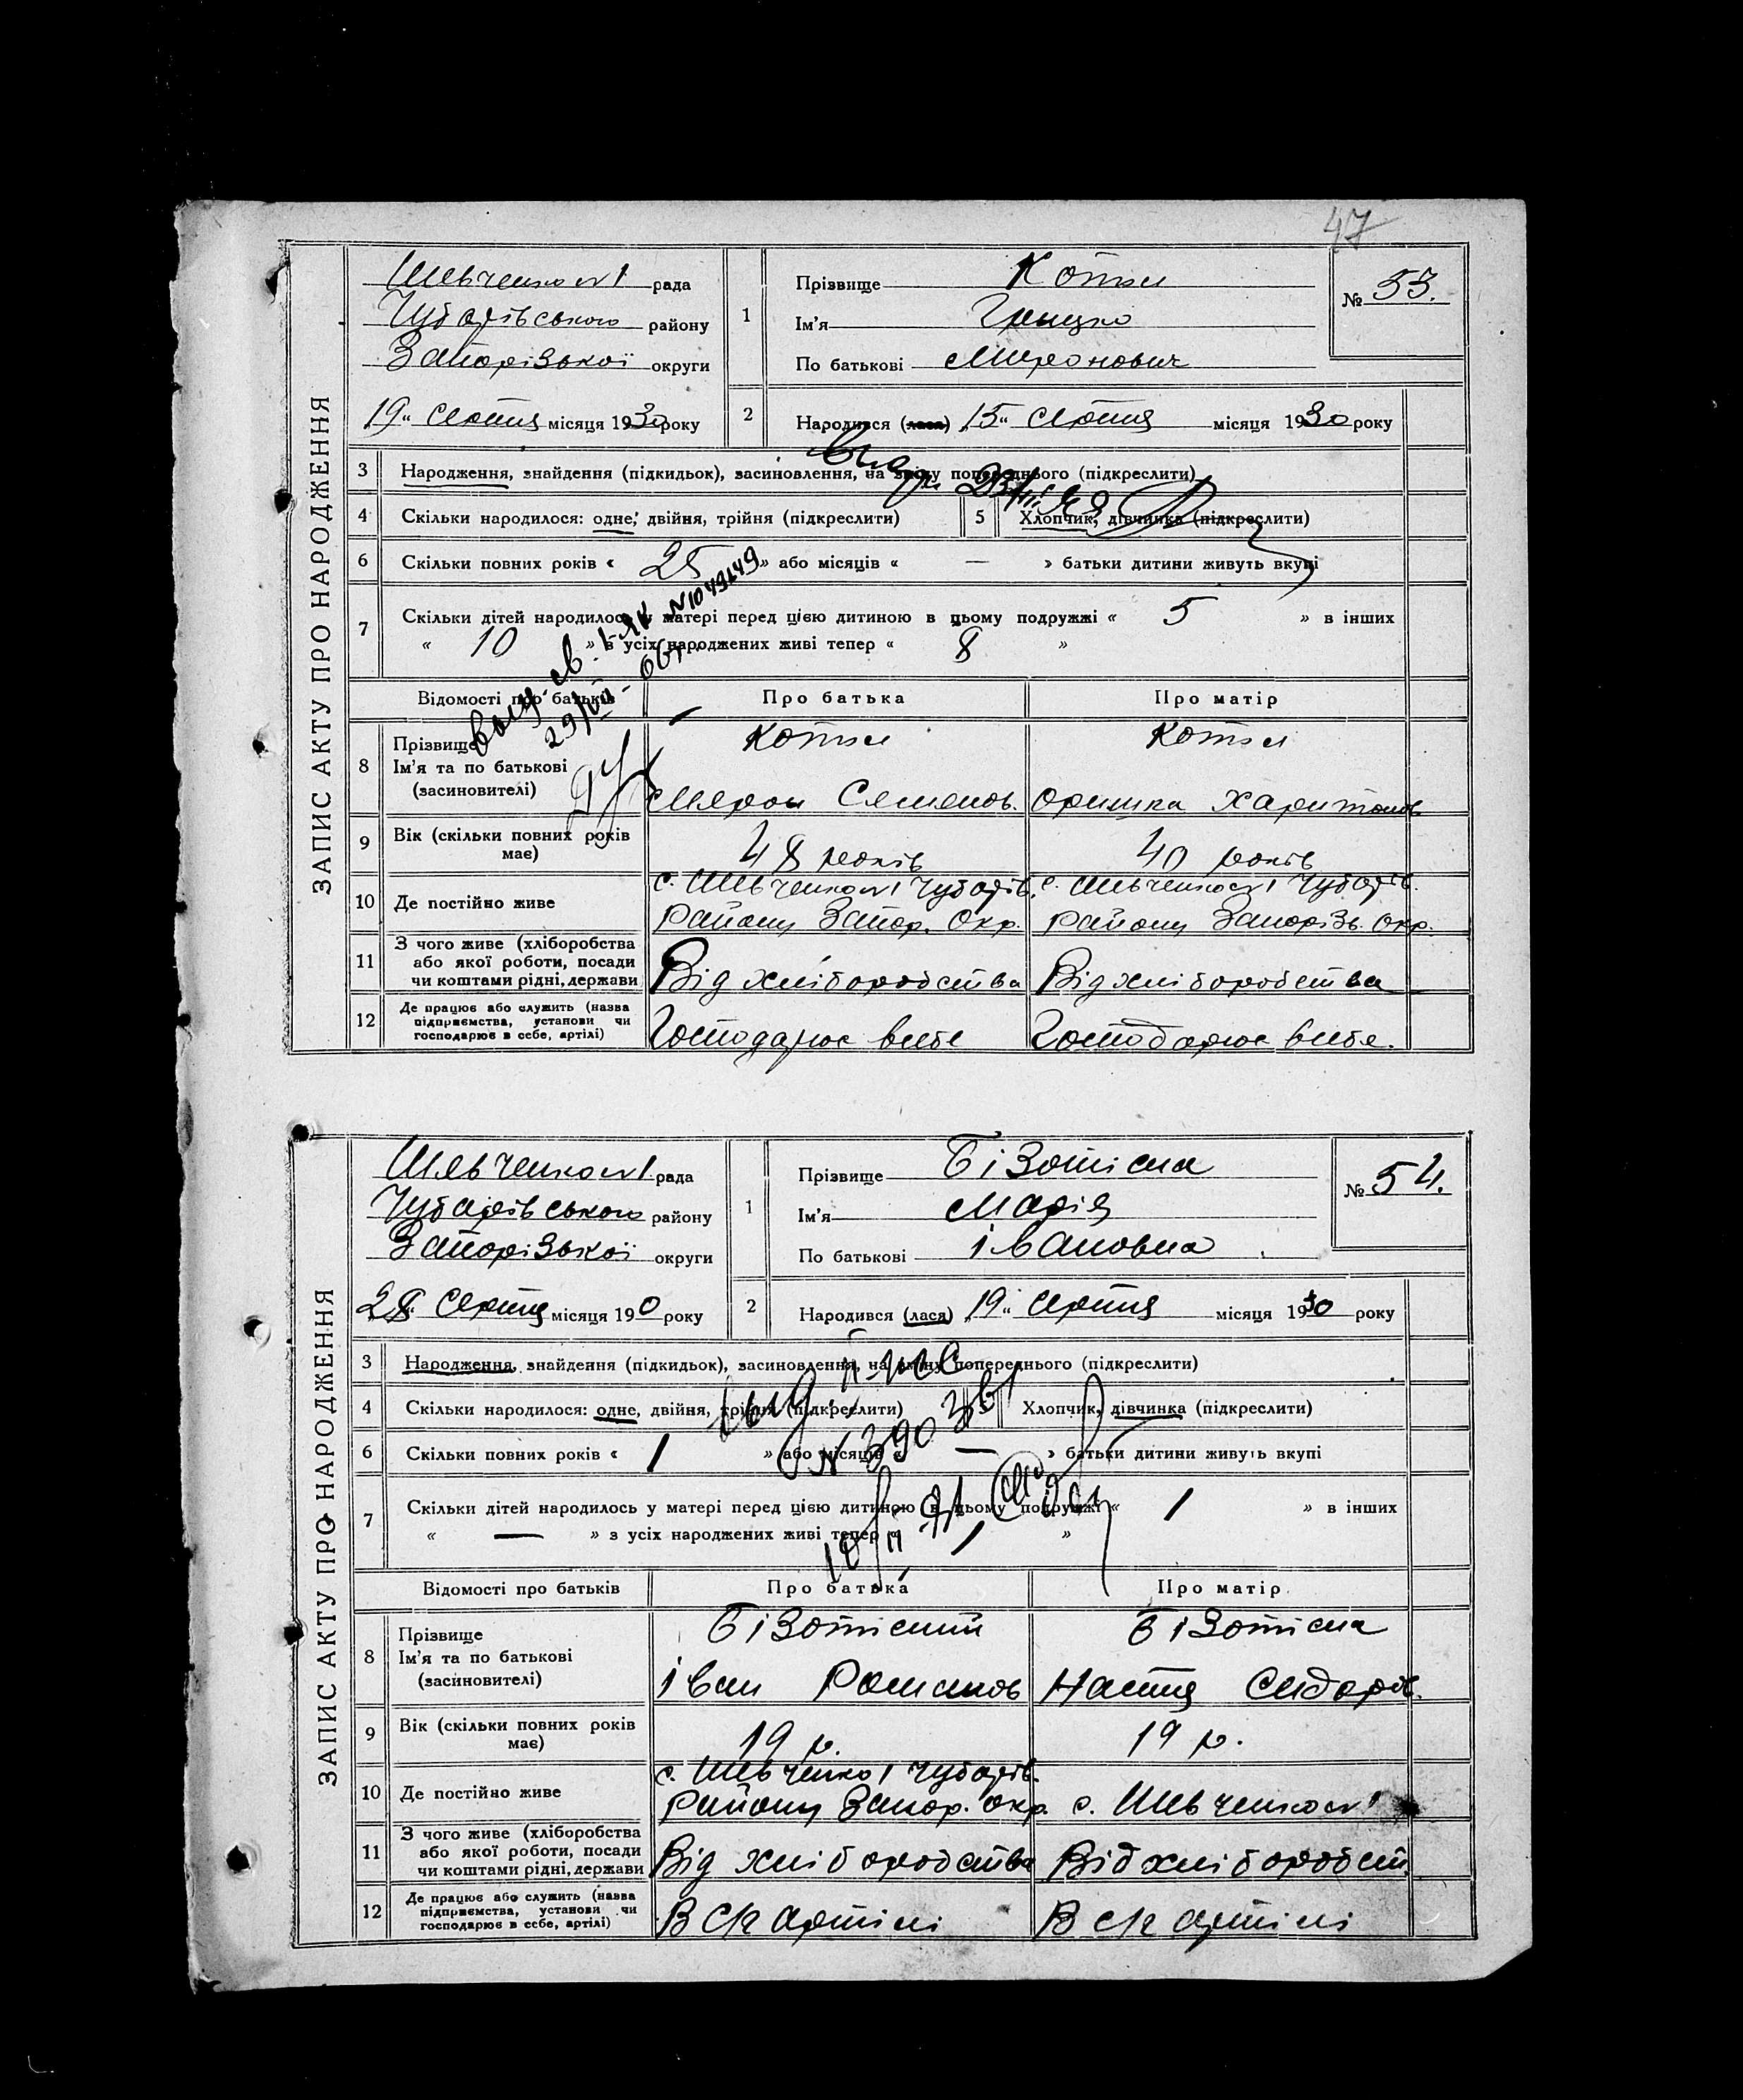 47
ЗАПИС АКТУ ПРО НАРОДЖЕННЯ
Шевченко №1 рада
Чубарівського району
Запорізької округи
„19“ Серпня місяця 1930 року
1 Прізвище Котля
Ім'я Грицко
По батькові Миронович
№ 53.
2 Народився (лася) „15“ Серпня місяця 1930 року
3 Народження, знайдення (підкидьок), засиновлення, на зміну попереднього (підкреслити)
4 Скільки народилося: одне, двійня, трійня (підкреслити) 5 Хлопчик, дівчинка (підкреслити)
6 Скільки повних років « 25 » або місяців « — » батьки дитини живуть вкупі
7 Скільки дітей народилось у матері перед цією дитиною в цьому подружжі « 5 » в інших
« 10 » з усіх народжених живі тепер « 8 »
№1049149
Відомості про батьків Про батька Про матір
8 Прізвище
Ім'я та по батькові
(засиновителі)
Котля Котля
Мирон Семенов. Оришка Харитонов
9 Вік (скільки повних років має) 48 років 40 років
10 Де постійно живе
с. Шевченко №1 Чубарів. с. Шевченко №1 Чубарів.
Району Запор. Окр. Району Запорізь. Окр.
11 З чого живе (хліборобства
або якої роботи, посади
чи коштами рідні, держави
Від хліборобства Від хліборобства
12 Де працює або служить (назва
підприємства, установи чи
господарює в себе, артілі)
Господарює в себе Господарює в себе.
ЗАПИС АКТУ ПРО НАРОДЖЕННЯ
Шевченко №1 рада
Чубарівського району
Запорізької округи
„28“ Серпня місяця 190 року
1 Прізвище Бізотісна
Ім'я Марія
По батькові Івановна
№ 54.
2 Народився (лася) „19“ Серпня місяця 1930 року
3 Народження, знайдення (підкидьок), засиновлення, на зміну попереднього (підкреслити)
4 Скільки народилося: одне, двійня, трійня (підкреслити) 5 Хлопчик, дівчинка (підкреслити)
6 Скільки повних років « 1 » або місяців « — » батьки дитини живуть вкупі
№ 390
7 Скільки дітей народилось у матері перед цією дитиною в цьому подружжі « 1 » в інших
« — » з усіх народжених живі тепер « 1 »
Відомості про батьків Про батька Про матір
8 Прізвище
Ім'я та по батькові
(засиновителі)
Бізотісний Бізотісна
Іван Романов Настя Сидорів.
9 Вік (скільки повних років має) 19 р. 19 р.
10 Де постійно живе
с. Шевченко 1 Чубарів.
Району Запор. окр. с. Шевченко №1
11 З чого живе (хліборобства
або якої роботи, посади
чи коштами рідні, держави
Від хліборобства Від хліборобст.
12 Де працює або служить (назва
підприємства, установи чи
господарює в себе, артілі)
В с/г артілі В с/г артілі